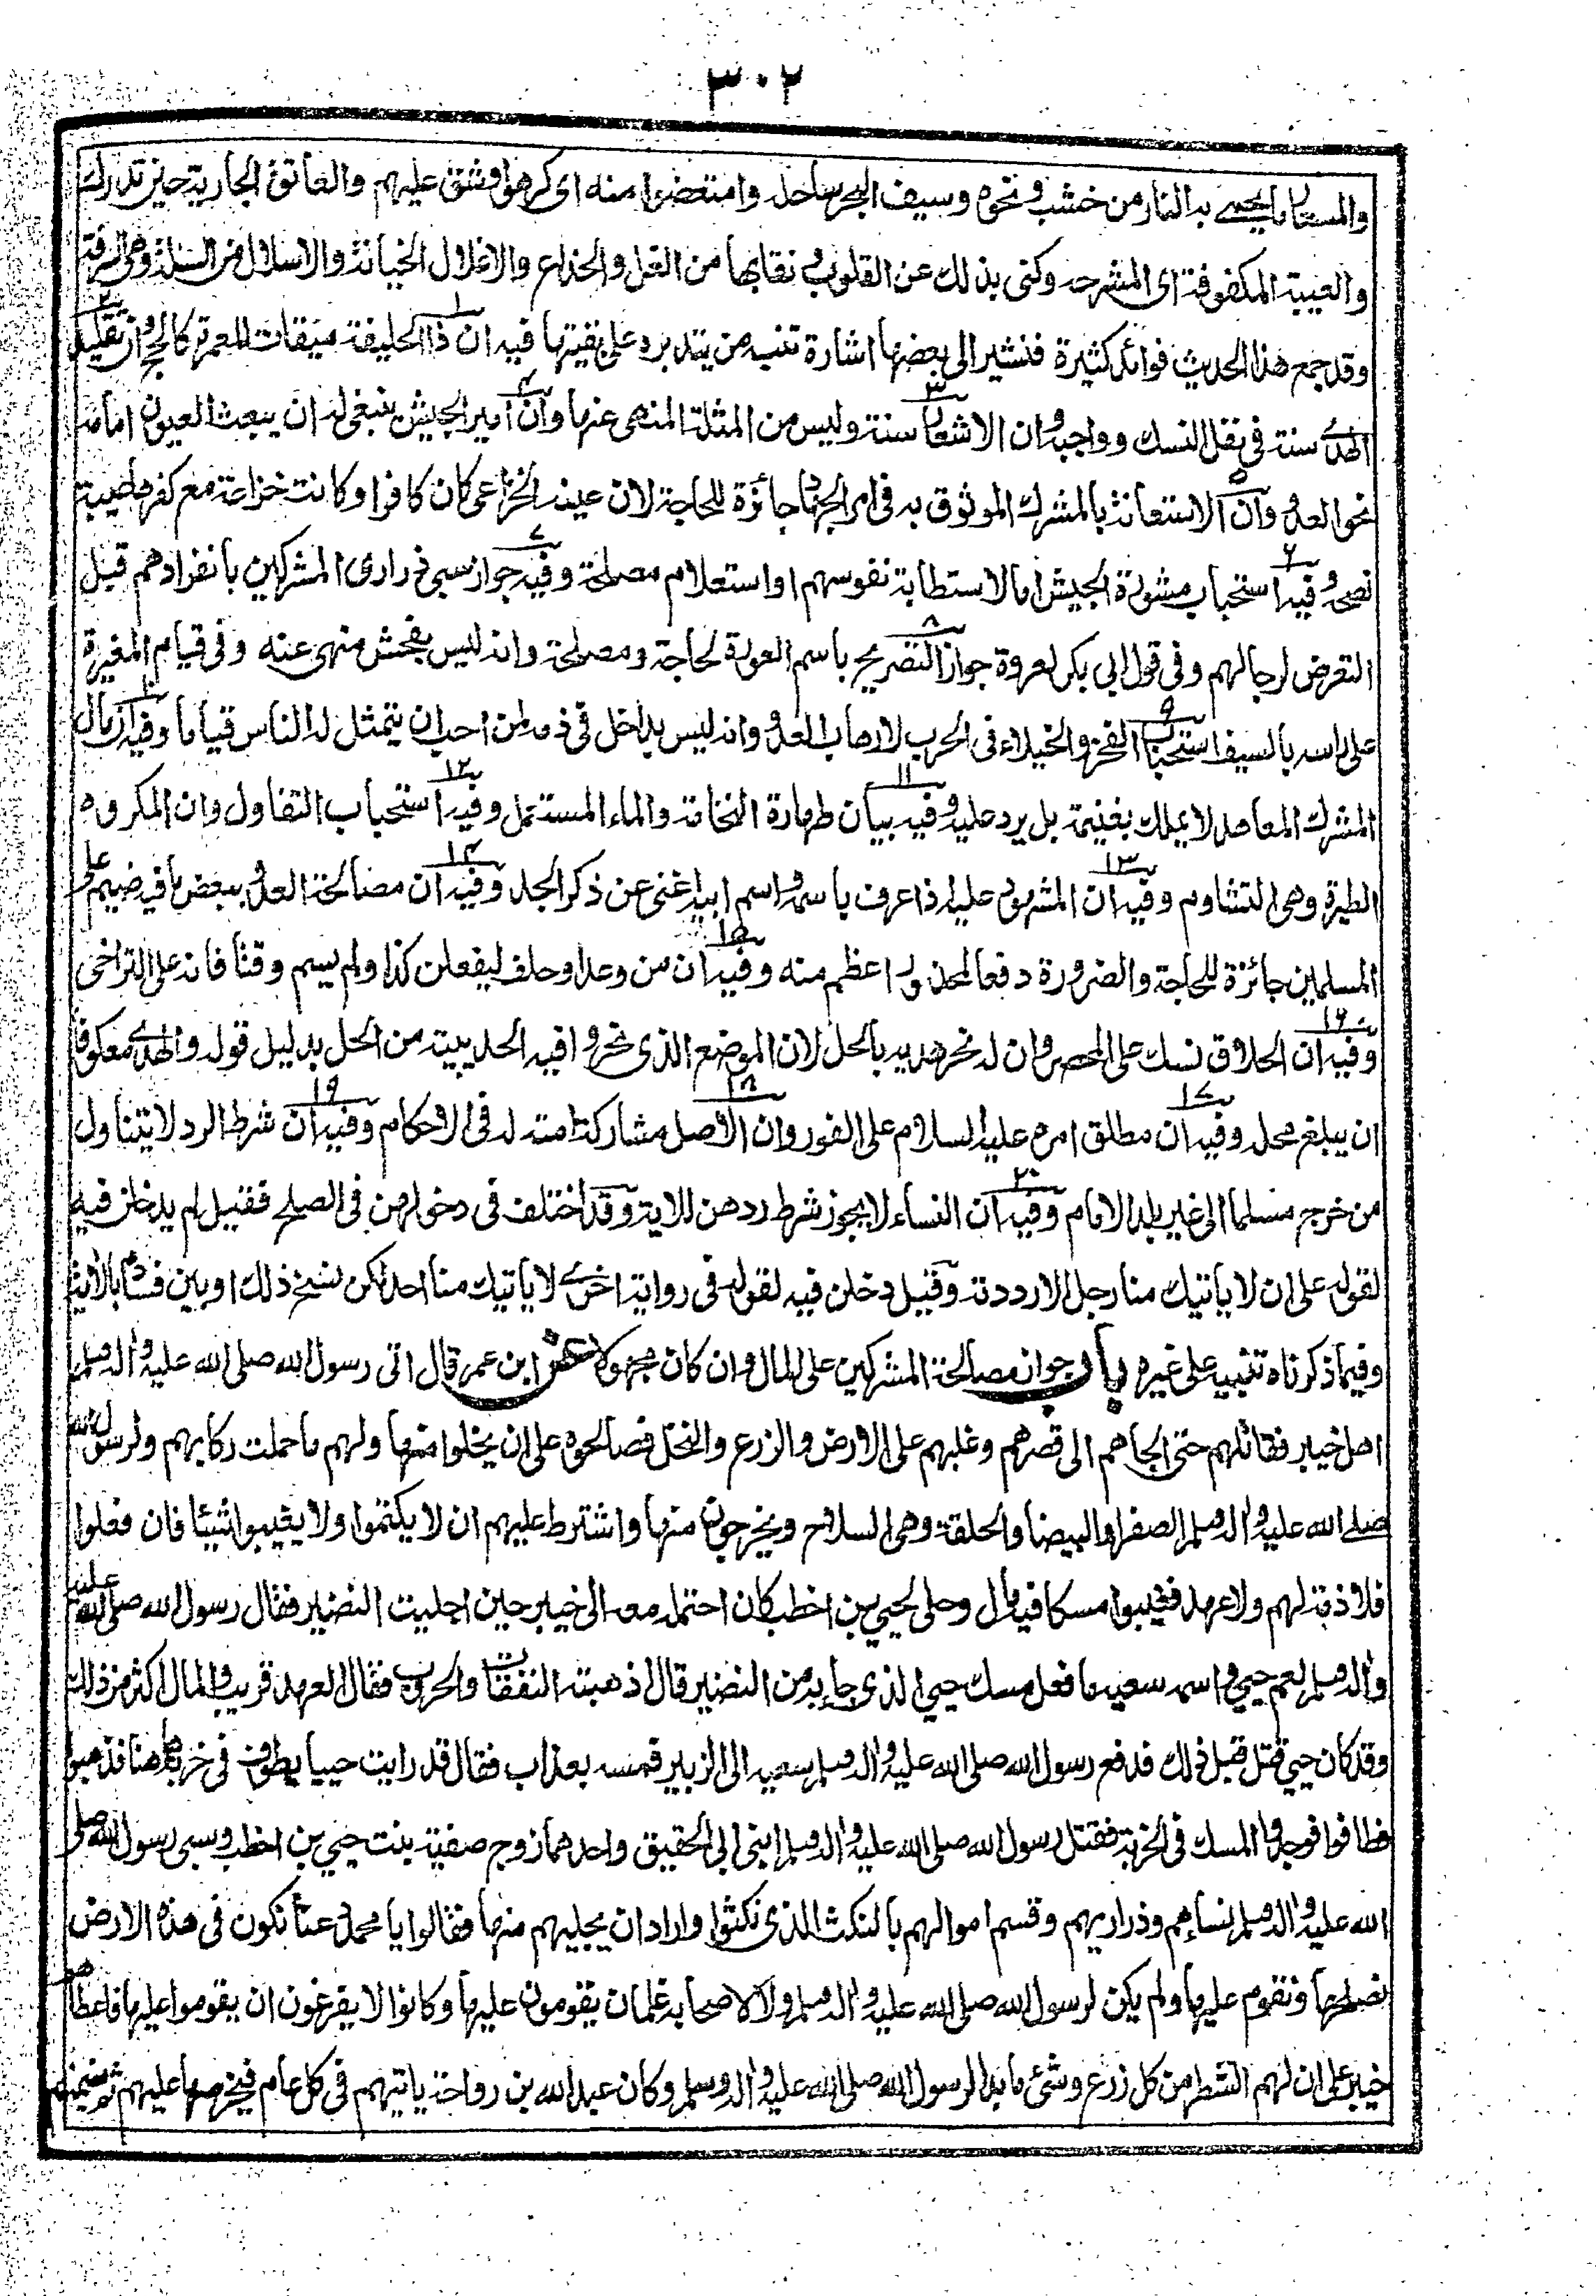 ٣٠٢
والمسعار ما يحمى به النار من خشب ونحوه وسيف البحر ساحله وامتعضوا منه اى كرهوا وشق عليهم والعاتق الجارية حين تدرك
والعيبة المكفوفة اى المشرجه وكنى بذلك عن القلوب ونقائها من الغل والخداع والاغلال الخيانة والاسلال من السلة وهى السرقة
وقد جمع هذا الحديث فوائد كثيرة فنشير الى بعضها اشارة تنبه من يتدبره على بقيتها فيه ان ١ ذا الحليفة ميقات للعمرة كالحج وان ٢ تقليد
الهدے سنة فى نفل النسك وواجبه وان ٣ الاشعار سنة وليس من المثلة المنهى عنها وان ٤ امير الجيش ينبغى له ان يبعث العيون امامه
نحو العدو وان ٥ الاستعانة بالمشرك الموثوق به فى امر الجهاد جائزة للحاجة لان عينه الخزاعى كان كافرا وكانت خزاعة مع كفرها عيبة
نصحه وفيه ٦ استحباب مشورة الجيش اما لاستطابة نفوسهم او استعلام مصلحة وفيه ٧ جواز سبى ذرارى المشركين بانفرادهم قبل
التعرض لرجالهم وفى قول ابى بكر لعروة جواز ٨ التصريح باسم العورة لحاجة ومصلحة وانه ليس بفحش منهى عنه وفى قيام المغيرة
على راسه بالسيف استحباب ٩ الفخر والخيلاء فى الحرب لارهاب العدو وانه ليس بداخل فى ذمه لمن احب ان يتمثل له الناس قياما وفيه ١٠ ان مال
المشرك المعاهد لا يملك بغنيمة بل يرد عليه وفيه ١١ بيان طهارة النخامة والماء المستعمل وفيه ١٢ استحباب التفاول وان المكروه
الطيرة وهى التشاوم وفيه ١٣ ان المشهود عليه اذا عرف باسمه واسم ابيه اغنى عن ذكر الجد وفيه ١٤ ان مصالحة العدو ببعض ما فيه ضيم على
المسلمين جائزة للحاجة والضرورة دفعا لمحذور اعظم منه وفيه ١٥ ان من وعد او حلف ليفعلن كذا ولم يسم وقتا فانه على التراخى
وفيه ١٦ ان الحلاق نسك على المحصر وان له نحر هديه بالحل لان الموضع الذى نحروا فيه الحديبية من الحل بدليل قوله والهدے معكوفا
ان يبلغ محله وفيه ١٧ ان مطلق امره عليه السلام على الفور وان ١٨ الاصل مشاركة امته له فى الاحكام وفيه ١٩ ان شرط الرد لا يتناول
من خرج مسلما الى غير بلد الامام وفيه ٢٠ ان النساء لا يجوز شرط ردهن للاية وقد اختلف فى دخولهن فى الصلح فقيل لم يدخلن فيه
لقوله على ان لا ياتيك منا رجل الا رددته وقيل دخلن فيه لقوله فى رواية اخرے لا ياتيك منا احد لكن نسخ ذلك او بين فساده بالاية
وفيما ذكرناه تنبيه على غيره باب جواز مصالحة المشركين على المال وان كان مجهولا عن ابن عمر قال اتى رسول الله صلى الله عليه واله وسلم
اهل خيبر فقاتلهم حتى الجاهم الى قصرهم وغلبهم على الارض والزرع والنخل فصالحوه على ان يخلوا منها ولهم ما حملت ركابهم ولرسول الله
صلے الله عليه واله وسلم الصفرا والبيضا والحلقة وهى السلاح ويخرجون منها واشترط عليهم ان لا يكتموا ولا يغيبوا شيئا فان فعلوا
فلا ذمة لهم ولا عهد فغيبوا مسكا فيه مال وحلى لحيي بن اخطب كان احتمله معه الى خيبر حين اجليت النضير فقال رسول الله صلى الله عليه
واله وسلم لعم حيي واسمه سعيه ما فعل مسك حيي الذى جاء به من النضير قال اذهبته النفقات والحروب فقال العهد قريب والمال اكثر من ذلك
وقد كان حيي قتل قبل ذلك فدفع رسول الله صلى الله عليه واله وسلم سعيه الى الزبير فمسه بعذاب فقال قد رايت حييا يطوف فى خربة ههنا فذهبوا
فطافوا فوجدوا المسك فى الخربة فقتل رسول الله صلى الله عليه واله وسلم ابنى ابى الحقيق واحدهما زوج صفية بنت حيي بن اخطب وسبى رسول الله صلى
الله عليه واله وسلم نساءهم وذراريهم وقسم اموالهم بالنكث الذى نكثوا واراد ان يجليهم منها فقالوا يا محمد دعنا نكون فى هذه الارض
نصلحها ونقوم عليها ولم يكن لرسول الله صلى الله عليه واله وسلم ولا لاصحابه غلمان يقومون عليها وكانوا لا يفرغون ان يقوموا عليها فاعطاهم
خيبر على ان لهم الشطر من كل زرع وشئ ما بدا لرسول الله صلى الله عليه واله وسلم وكان عبد الله بن رواحة ياتيهم فى كل عام فيخرصها عليهم ثم يضمنهم